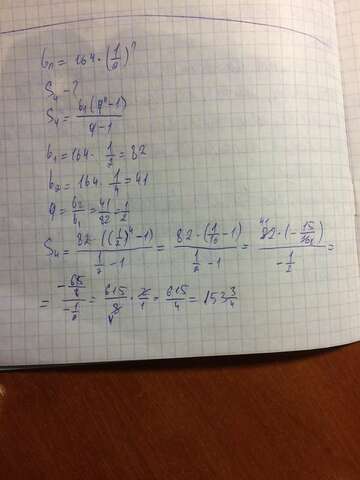 bₙ = 164 · (1/2)ⁿ
S₄ - ?
S₄ = b₁(q⁴-1)/(q-1)
b₁ = 164 · 1/2 = 82
b₂ = 164 · 1/4 = 41
q = b₂/b₁ = 41/82 = 1/2
S₄ = 82 · ((1/2)⁴-1)/(1/2 -1) = 82 · (1/16 -1)/(1/2 -1) = 82 · (-15/16)/(-1/2) =
= (-615/8)/(-1/2) = 615/8 · 2/1 = 615/4 = 153 3/4